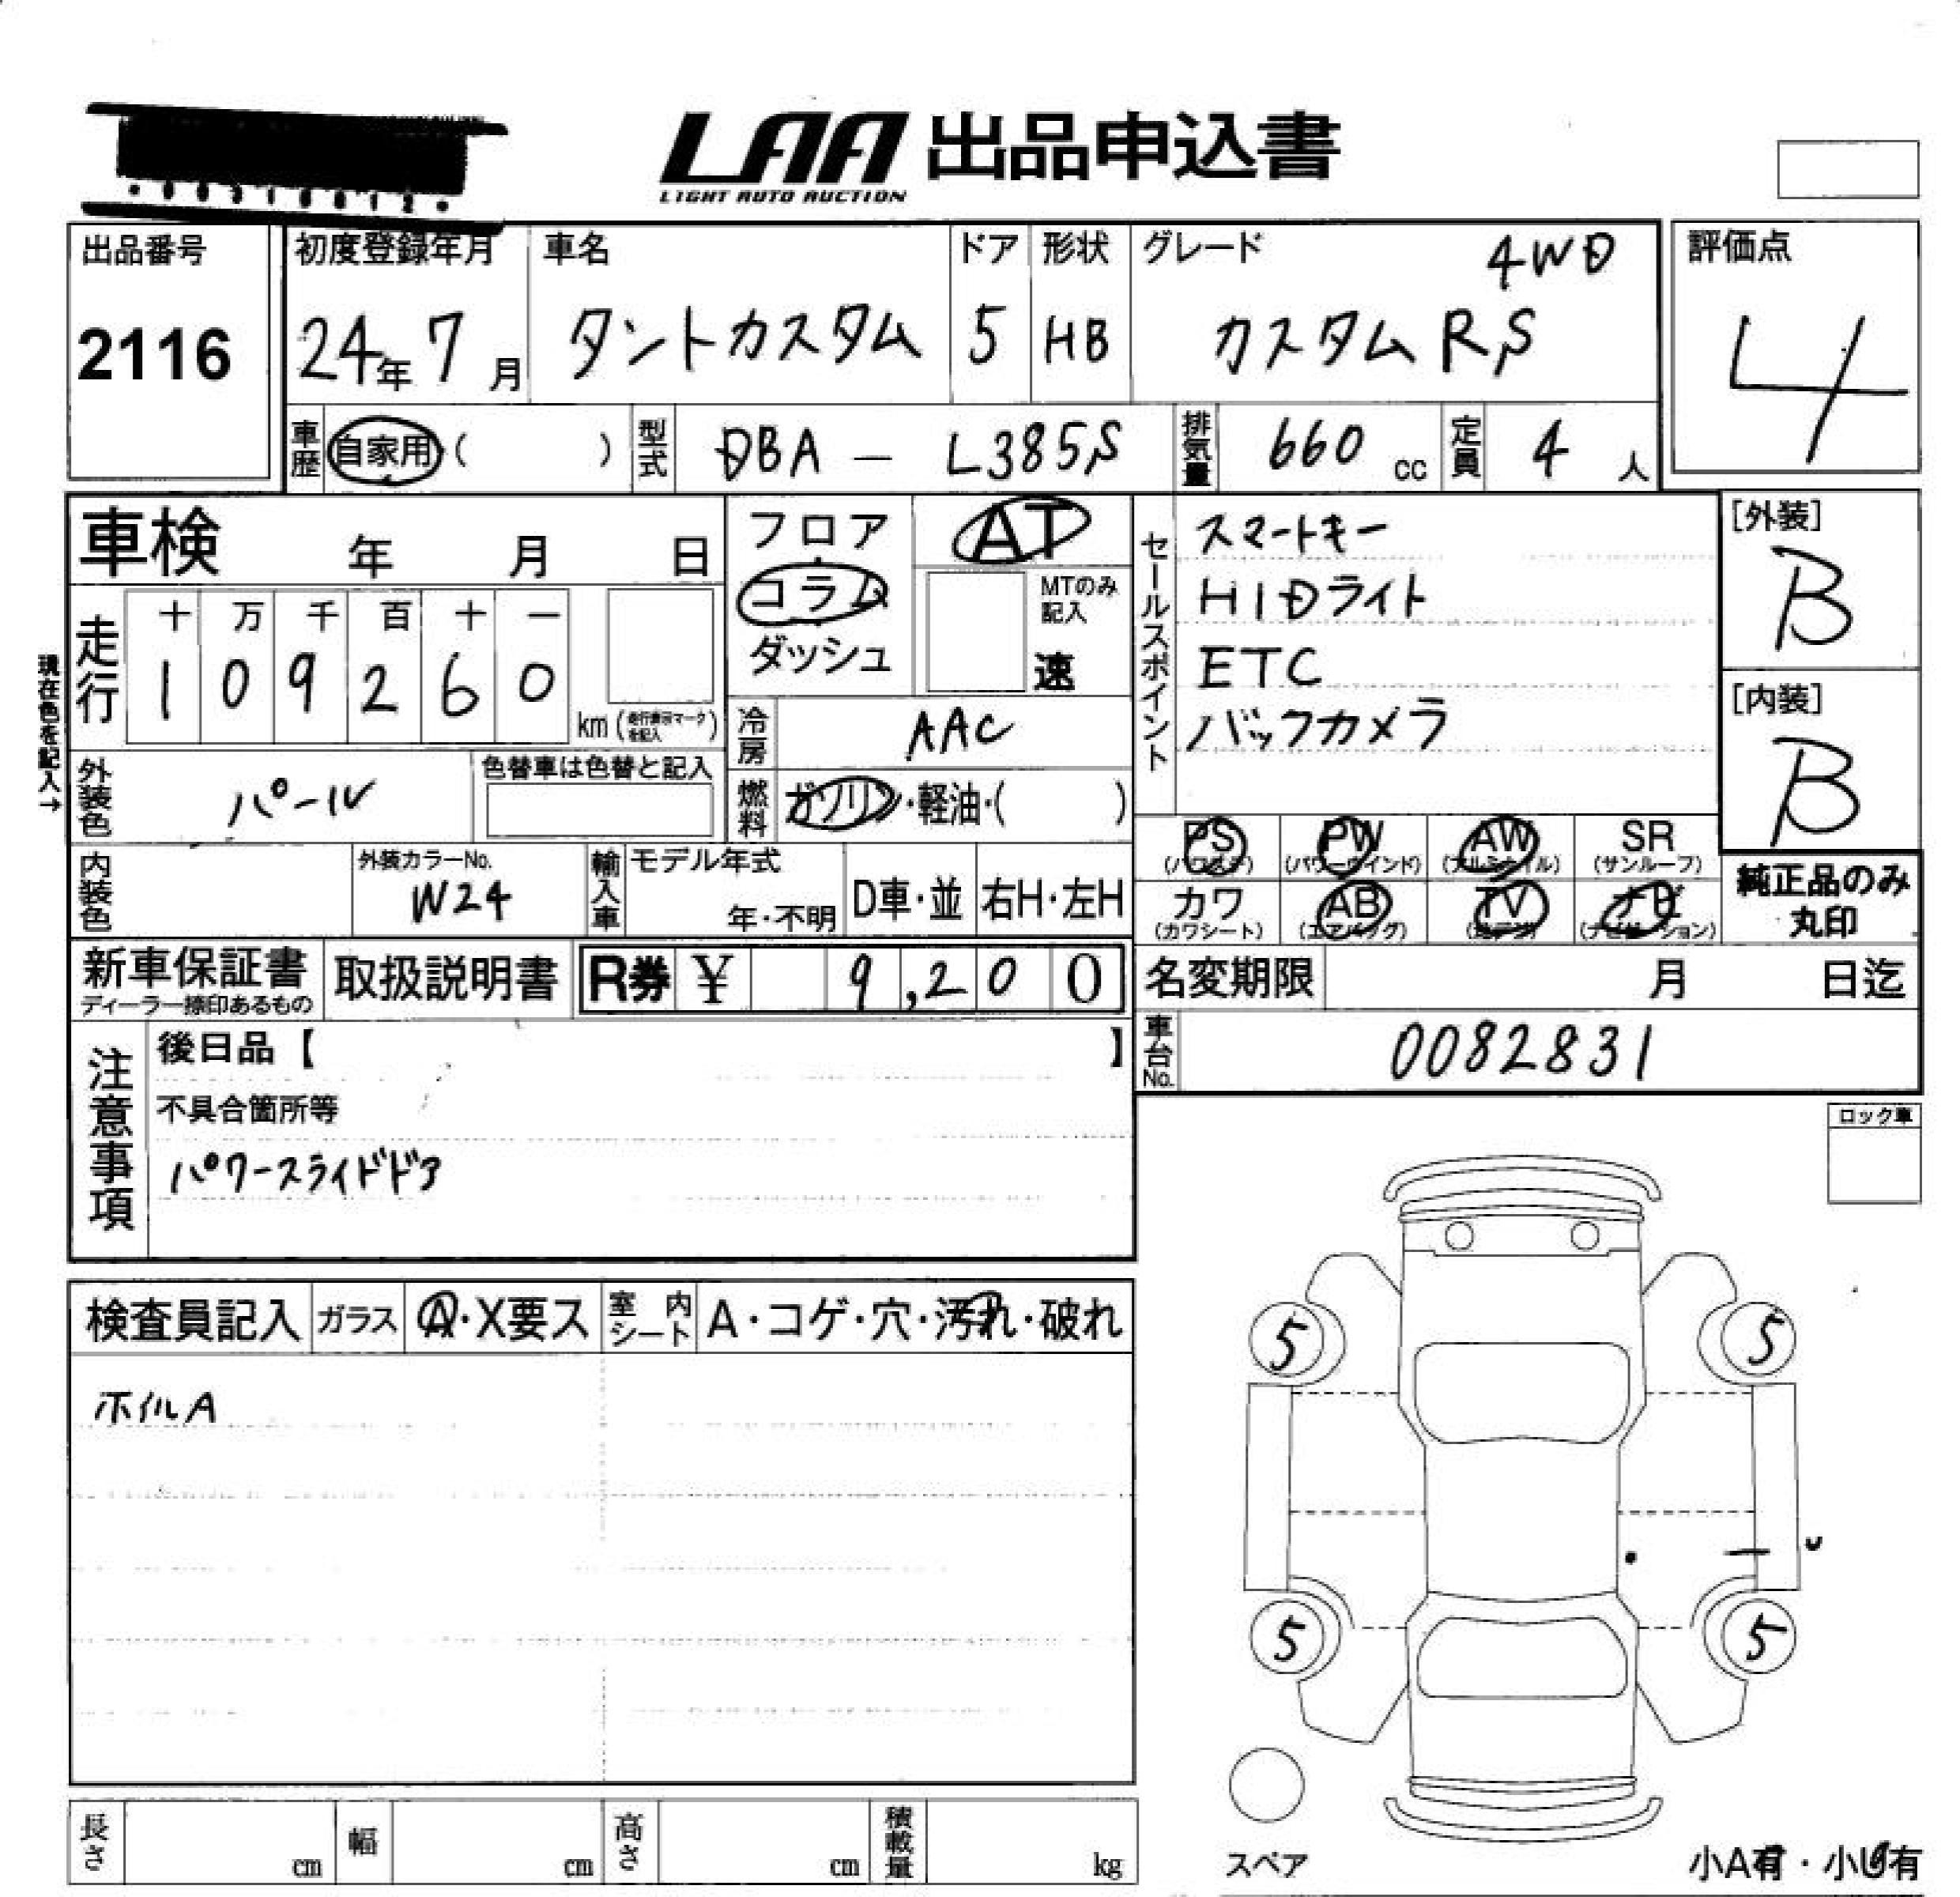 LAA 出品申込書
LIGHT AUTO AUCTION
出品番号
2116
初度登録年月
24年7月
車名
タントカスタム
ドア
5
形状
HB
グレード
4WD
カスタムRS
評価点
4
車歴
自家用・( )
型式
DBA - L385S
排気量
660 cc
定員
4 人
車検 年 月 日
フロア
コラム
ダッシュ
AT
MTのみ記入
速
セールスポイント
スマートキー
HIDライト
ETC
バックカメラ
[外装]
B
[内装]
B
現在色を記入→
走行
十 万 千 百 十 一
1 0 9 2 6 0
km (走行表示マークを記入)
冷房
AAC
外装色
パール
色替車は色替と記入
燃料
ガソリン・軽油・( )
PS
(パワステ)
PW
(パワーウインド)
AW
(アルミホイル)
SR
(サンルーフ)
カワ
(カワシート)
AB
(エアバッグ)
TV
(地デジ)
ナビ
(ナビゲーション)
純正品のみ
丸印
内装色
外装カラーNo.
W24
輸入車
モデル年式
年・不明
D車・並
右H・左H
新車保証書
ディーラー捺印あるもの
取扱説明書
R券 ¥ 9,200
名変期限 月 日迄
車台No.
0082831
注意事項
後日品【 】
不具合箇所等
パワースライドドア
ロック車
検査員記入
ガラス
A・X要ス
室内シート
A・コゲ・穴・汚れ・破れ
ホイルA
5
5
5
5
スペア
小A有・小U有
長さ cm
幅 cm
高さ cm
積載量 kg